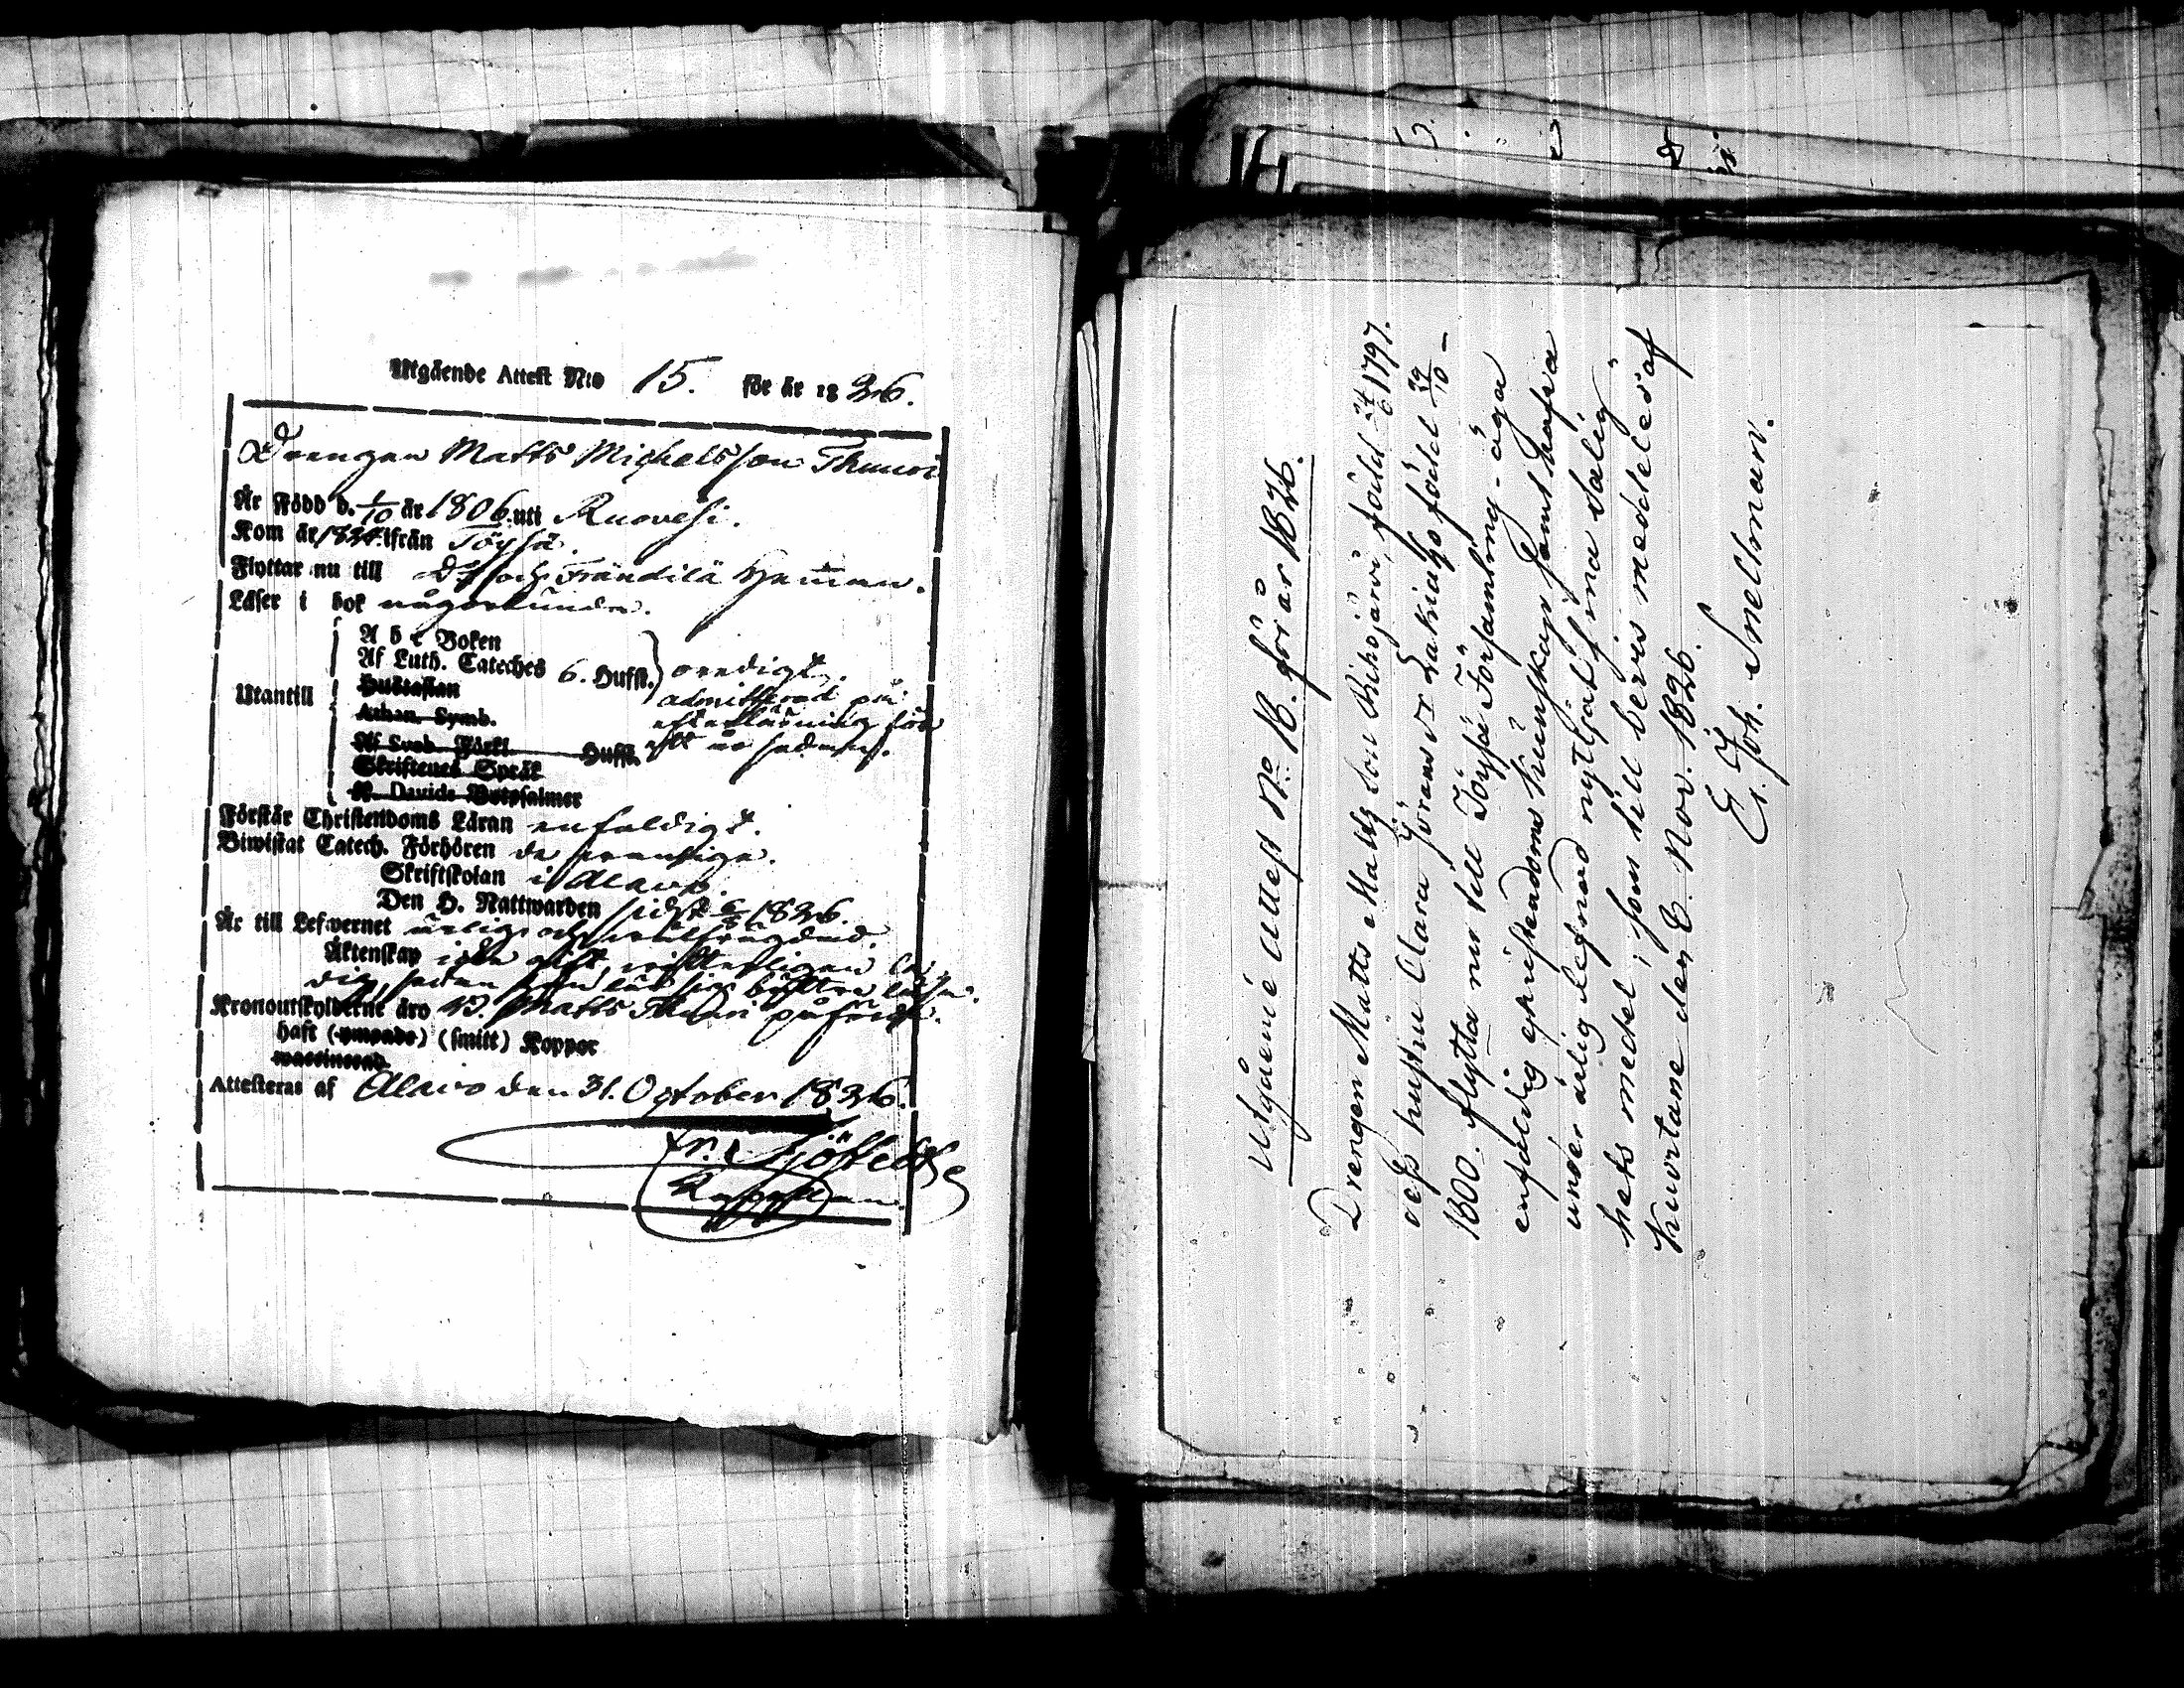 Utgående Attest N:o 15. för år 1826.
Drengen Matts Michelsson Thuuri
Är Född d. 1/10 år 1806. uti Ruovesi.
Kom år 1824. ifrån Töysä.
Flyttar nu till och Frändilä Hemman.
Läser i bok någorlunda.
Utantill
A b c Boken
Af Luth. Cateches 6. Hufst. oredigt.
Hustaflan admitterad på
Athan. Symb. efterläsning för
Af Sveb. Förkl. Hufst. ett år sedan.
Skriftenes Språk
K. Davids Botpsalmer
Förstår Christendoms Läran enfaldigt.
Biwistat Catech. Förhören de
Skriftskolan i Alavo.
Den H. Nattwarden sidst 1826.
Är till Lefwernet ärlig och
Äktenskap icke gift,
dig, sedan han lär sig bättre läsa.
Kronoutskylderne äro Matts Thuuri påförde.
haft (ymoade) (smitt) Koppor
waccinerad
Attesteras af Alavo den 31. October 1826.
Fr. Sjöstedt
Kappellan
Utgående Attest No 18. för år 1826.
Drengen Matts Matts son Rihojärvi, född 24/6 1797.
dess hustru Clara Jörans dr Lakiaho född 29/10 –
1800. flytta nu till Töysä Församling – äga
enfaldig christendoms kunskap samt hafva
under ärlig lefnad nyttjat sina salig
hets medel; som till bevis meddeles af
Kuortane den 6. Nov. 1826.
E. Joh. Snellman.